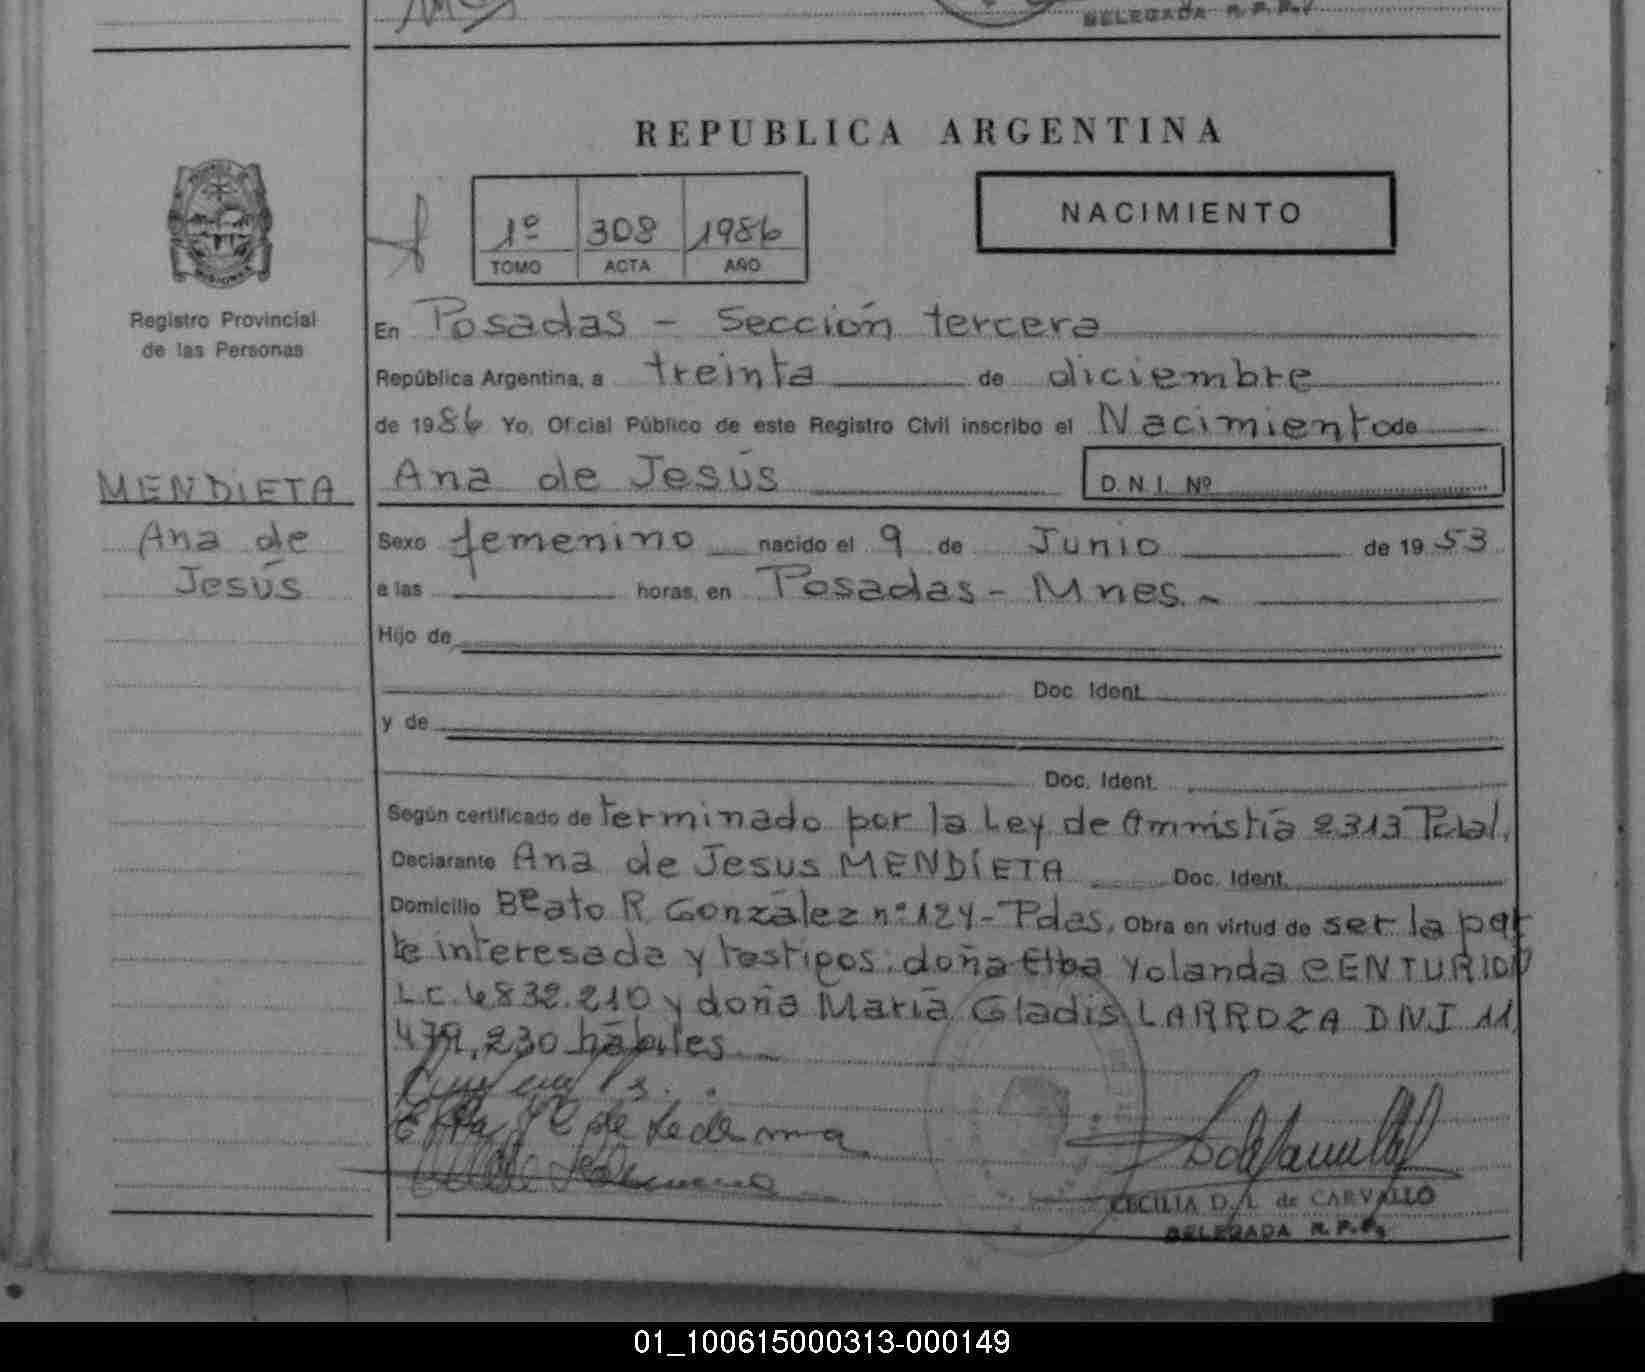 DELEGADA R. P. P.
REPUBLICA ARGENTINA
NACIMIENTO
1º 308 1986
TOMO ACTA AÑO
MISIONES
Registro Provincial
de las Personas
En Posadas - Sección tercera
República Argentina, a treinta de diciembre
de 1986 Yo, Oficial Público de este Registro Civil inscribo el Nacimiento de
MENDIETA
Ana de Jesús D.N.I. Nº
Ana de
Jesús
Sexo femenino nacido el 9 de Junio de 1953
a las horas, en Posadas - Mnes.-
Hijo de
Doc. Ident.
y de
Doc. Ident.
Según certificado de terminado por la Ley de Amnistía 2313 Pcial.
Declarante Ana de Jesus MENDIETA Doc. Ident.
Domicilio Beato R. González nº 124- Pdas. Obra en virtud de ser la par
te interesada y testigos: doña Elba Yolanda CENTURION
L.C. 6832.210 y doña María Gladis LARROZA DNI 11
479,230 hábiles
de Ledesma
CECILIA D. L. de CARVALLO
DELEGADA R. P. P.
01_100615000313-000149